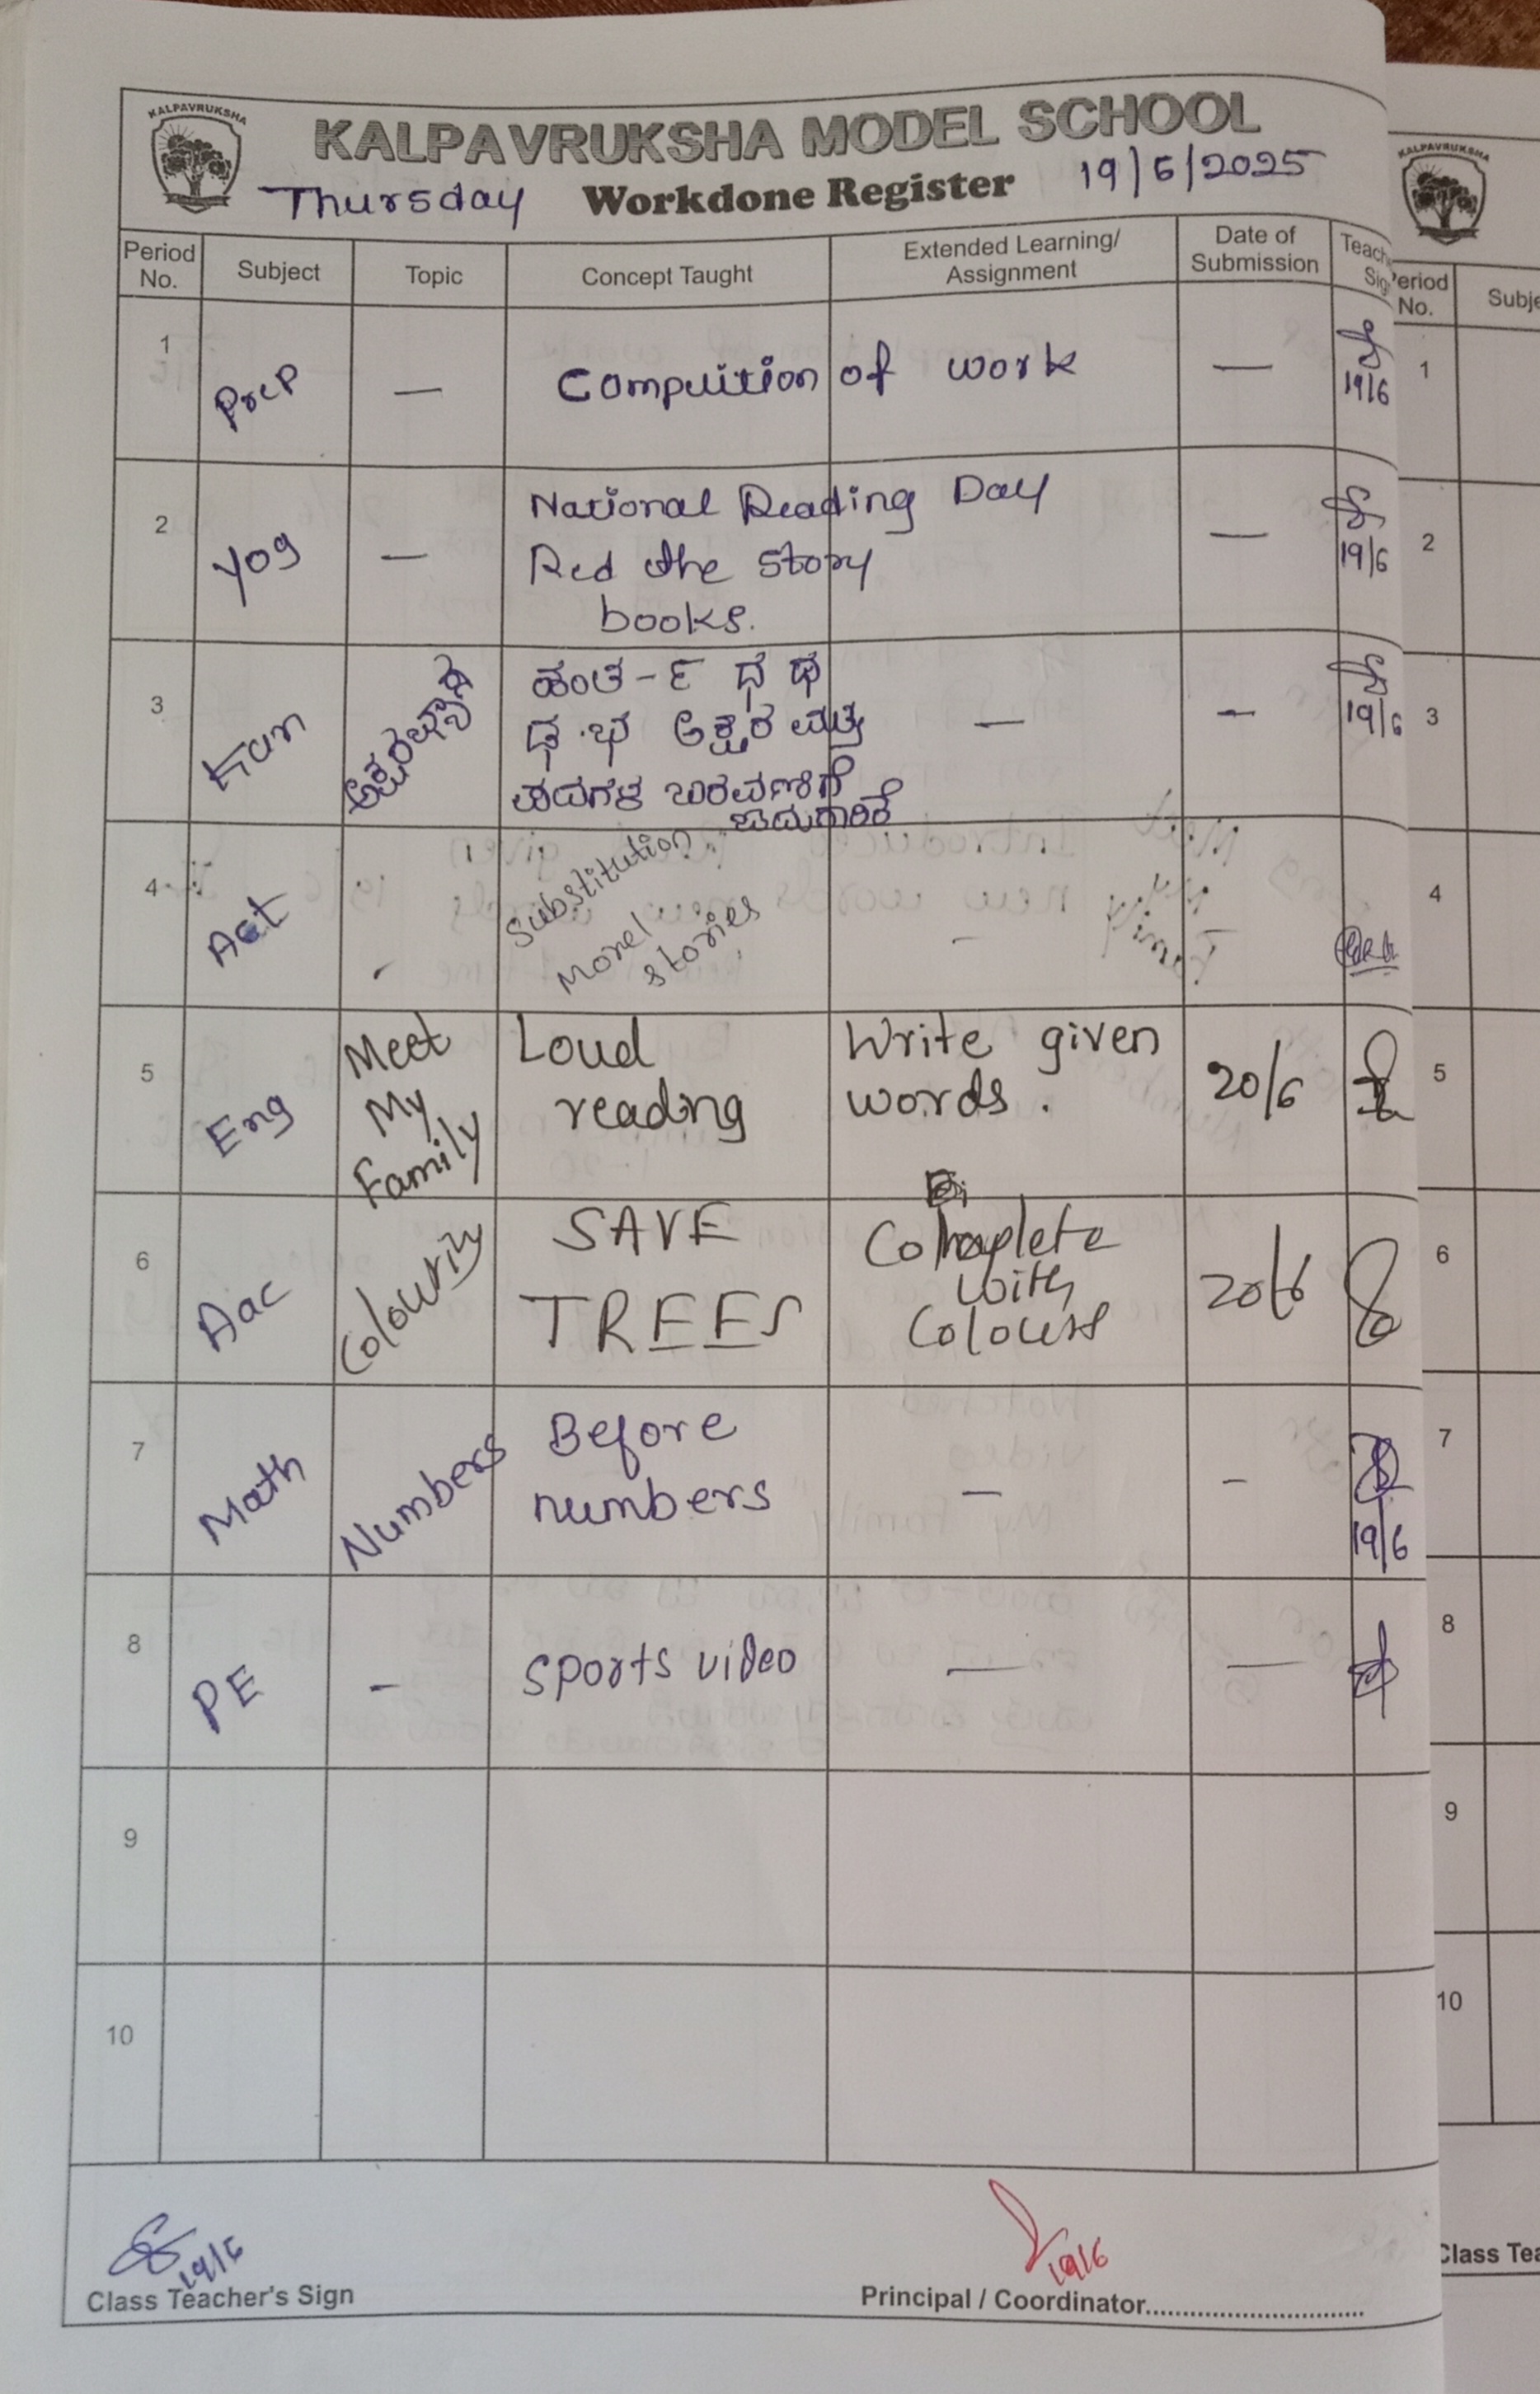 KALPAVRUKSHA
KALPAVRUKSHA MODEL SCHOOL
Thursday Workdone Register 19/6/2025
Period No. Subject Topic Concept Taught Extended Learning/ Assignment Date of Submission Teach Sig
1 Prep — Compuition of work — 19/6
2 Yog — National Reading Day — 19/6
Red the story
books.
3 Kan ಅಕ್ಷರಭ್ಯಾಸ ಹಂತ-೯ ಧ ಥ — – 19/6
ಢ ಭ ಅಕ್ಷರ ಮತ್ತು
ಪದಗಳ ಬರವಣಿಗೆ
ಓದುಗಾರಿಕೆ
4 Act - Substitution -
Morel
stories
5 Eng Meet My Family Loud reading Write given words. 20/6
6 Aac Colouring SAVE TREES Complete with Colours 20/6
7 Math Numbers Before numbers – – 19/6
8 PE - Sports video — —
9
10
19/6
Class Teacher's Sign
19/6
Principal / Coordinator
KALPAVRUKSHA
Period No.
1
2
3
4
5
6
7
8
9
10